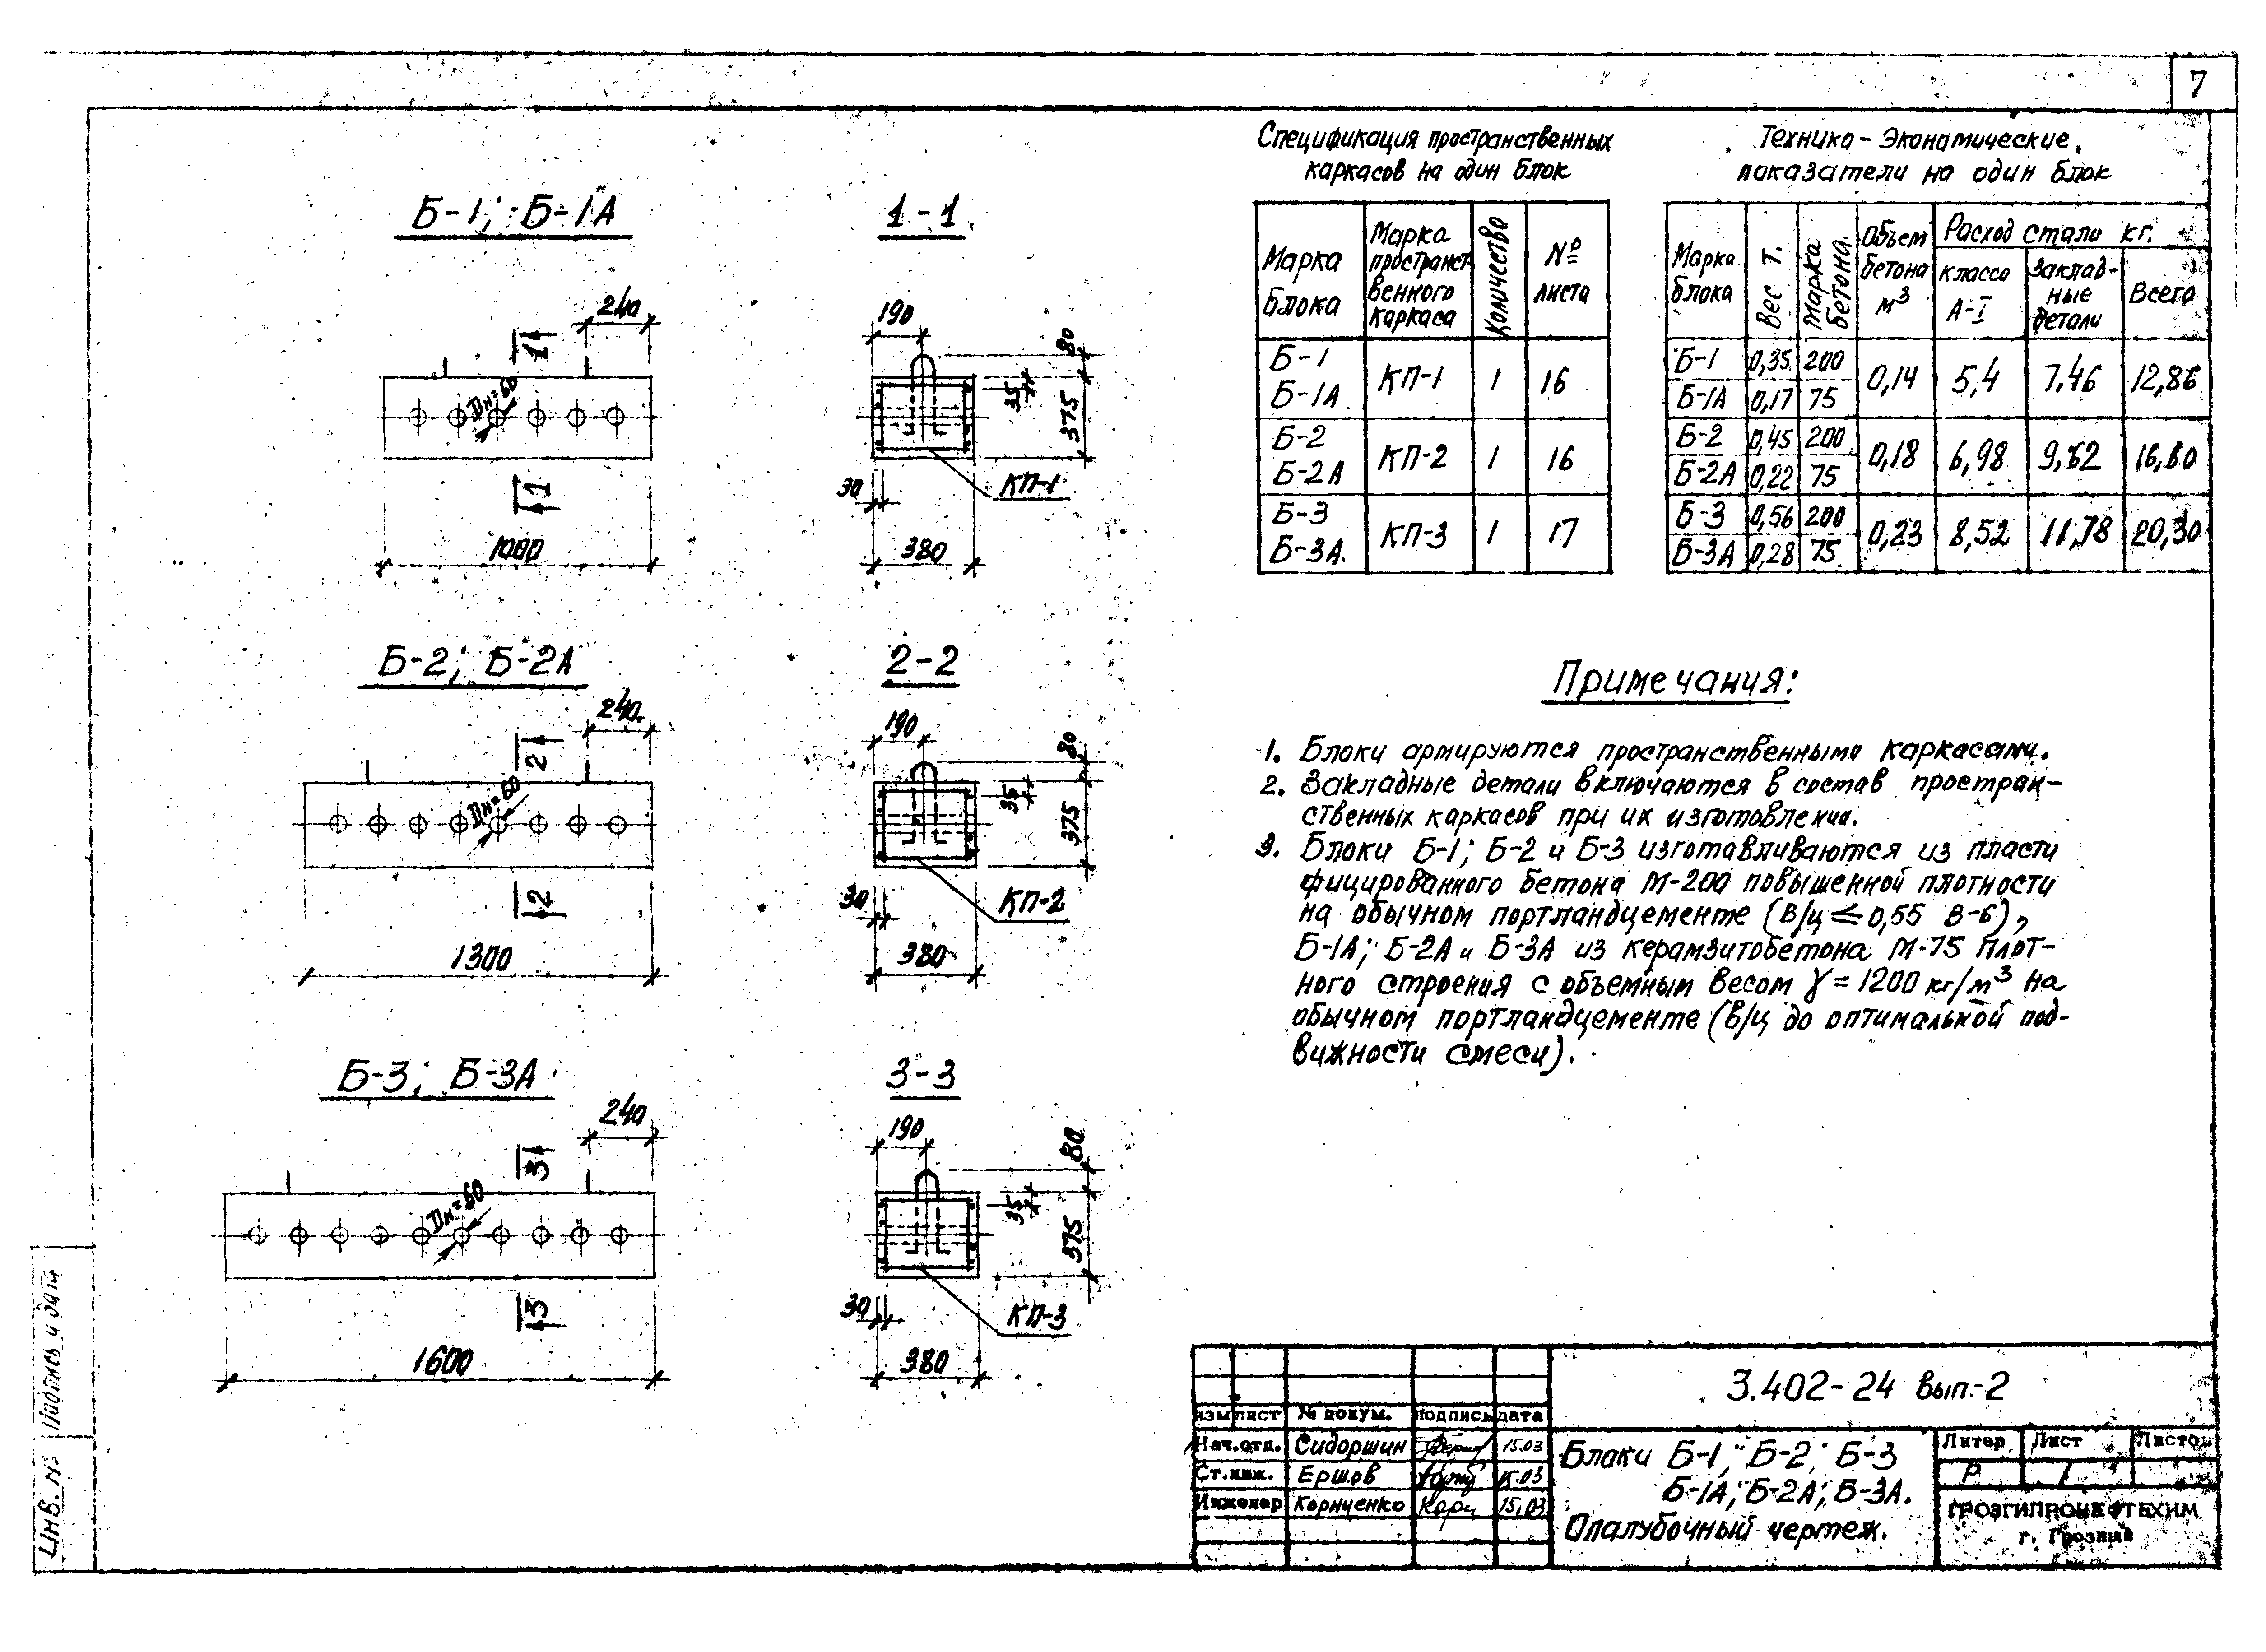 7
Б-1; Б-1А
1-1
240
1
Dн=60
1
1000
190
80
35
375
30
КП-1
380
Б-2; Б-2А
2-2
240
2
Dн=60
2
1300
190
80
35
375
30
КП-2
380
Б-3; Б-3А
3-3
240
3
Dн=60
3
1600
190
80
35
375
30
КП-3
380
Спецификация пространственных
каркасов на один блок
Марка блока | Марка пространственного каркаса | Количество | № листа
Б-1
Б-1А КП-1 1 16
Б-2
Б-2А КП-2 1 16
Б-3
Б-3А. КП-3 1 17
Технико-Экономические
показатели на один блок
Марка блока | Вес т. | Марка бетона. | Объем бетона м³ | Расход стали кг.
Класса А-I | Закладные детали | Всего
Б-1 0,35 200 0,14 5,4 7,46 12,86
Б-1А 0,17 75
Б-2 0,45 200 0,18 6,98 9,62 16,60
Б-2А 0,22 75
Б-3 0,56 200 0,23 8,52 11,78 20,30
Б-3А 0,28 75
Примечания:
1. Блоки армируются пространственными каркасами.
2. Закладные детали включаются в состав простран-
ственных каркасов при их изготовлении.
3. Блоки Б-1; Б-2 и Б-3 изготавливаются из пласти
фицированного бетона М-200 повышенной плотности
на обычном портландцементе (В/ц ≤ 0,55 В-6),
Б-1А; Б-2А и Б-3А из керамзитобетона М-75 плот-
ного строения с объемным весом γ = 1200 кг/м³ на
обычном портландцементе (В/ц до оптимальной под-
вижности смеси).
3.402-24 вып.-2
изм лист № докум. подпись дата
Нач.отд. Сидоршин 15.03
Ст.инж. Ершов 15.03
Инженер Корниенко 15.03
Блоки Б-1; Б-2; Б-3
Б-1А; Б-2А; Б-3А.
Опалубочный чертеж.
Литер Лист Листов
Р 1
ГРОЗГИПРОНЕФТЕХИМ
г. Грозный
Подпись и дата
Инв. №